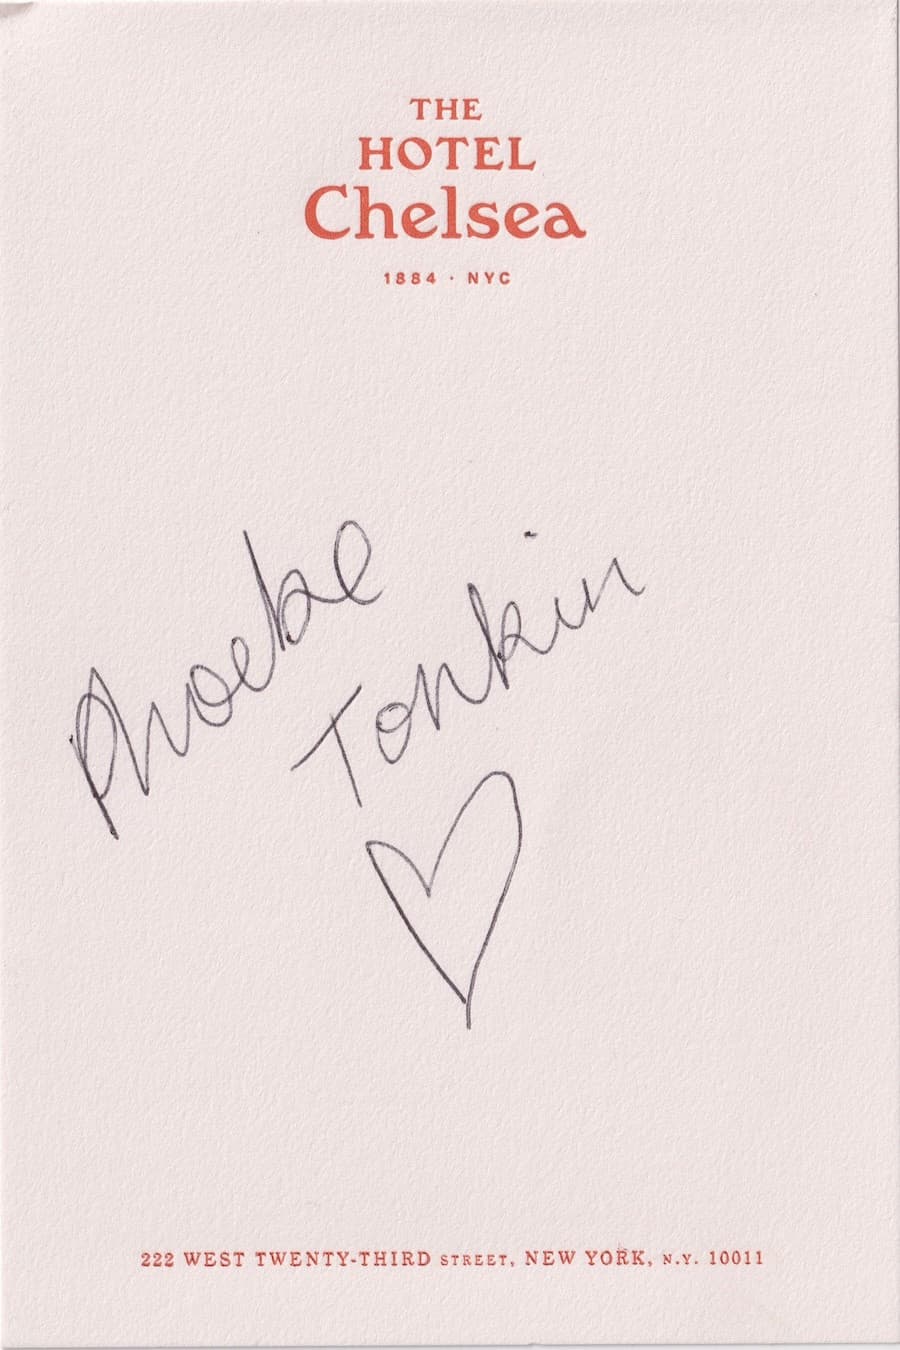 THE
HOTEL
Chelsea
1884 · NYC
Phoebe
Tonkin
222 WEST TWENTY-THIRD STREET, NEW YORK, N.Y. 10011